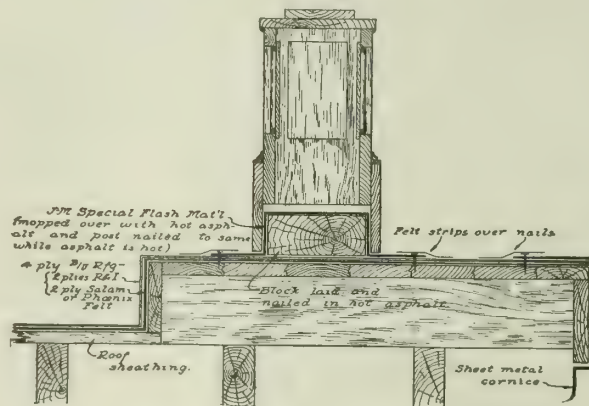 J-M Special Flash Mat'l
(mopped over with hot asph-
alt and post nailed to same
while asphalt is hot)
Felt strips over nails
4 ply B/U Rfg-
{2 plies R&I
{2 ply Salamo
or Phœnix
Felt
Block laid and
nailed in hot asphalt
Roof
sheathing.
Sheet metal
cornice